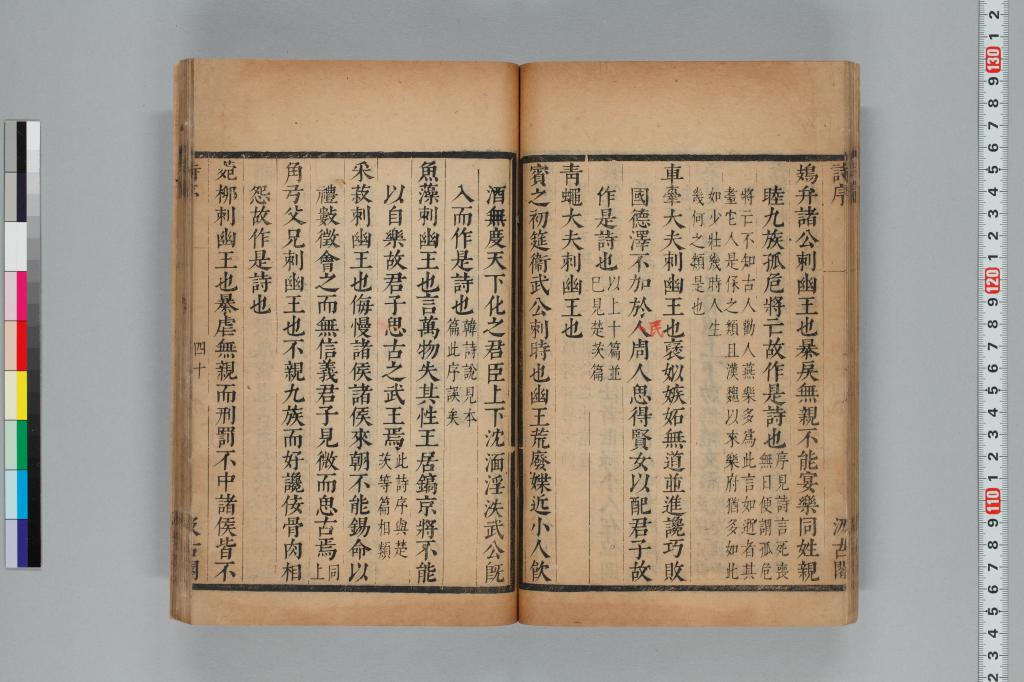 詩序
汲古閣
鴇弁諸公刺幽王也暴戾無親不能宴樂同姓親
睦九族孤危將亡故作是詩也序見詩言死喪
無日便謂孤危
將亡不知古人勸人燕樂多爲此言如逝者其
耋它人是保之類且漢魏以來樂府猶多如此
如少壯幾時人生
幾何之類是也
車舝大夫刺幽王也褒姒嫉妬無道並進讒巧敗
國德澤不加於人周人思得賢女以配君子故
民
作是詩也以上十篇並
已見楚茨篇
青蠅大夫刺幽王也
賓之初筵衞武公刺時也幽王荒廢媟近小人飲
酒無度天下化之君臣上下沈湎淫泆武公旣
入而作是詩也韓詩說見本
篇此序誤矣
魚藻刺幽王也言萬物失其性王居鎬京將不能
以自樂故君子思古之武王焉此詩序與楚
茨等篇相類
采菽刺幽王也侮慢諸侯諸侯來朝不能錫命以
禮數徵會之而無信義君子見微而思古焉同
上
角弓父兄刺幽王也不親九族而好讒佞骨肉相
怨故作是詩也
菀柳刺幽王也暴虐無親而刑罰不中諸侯皆不
四十